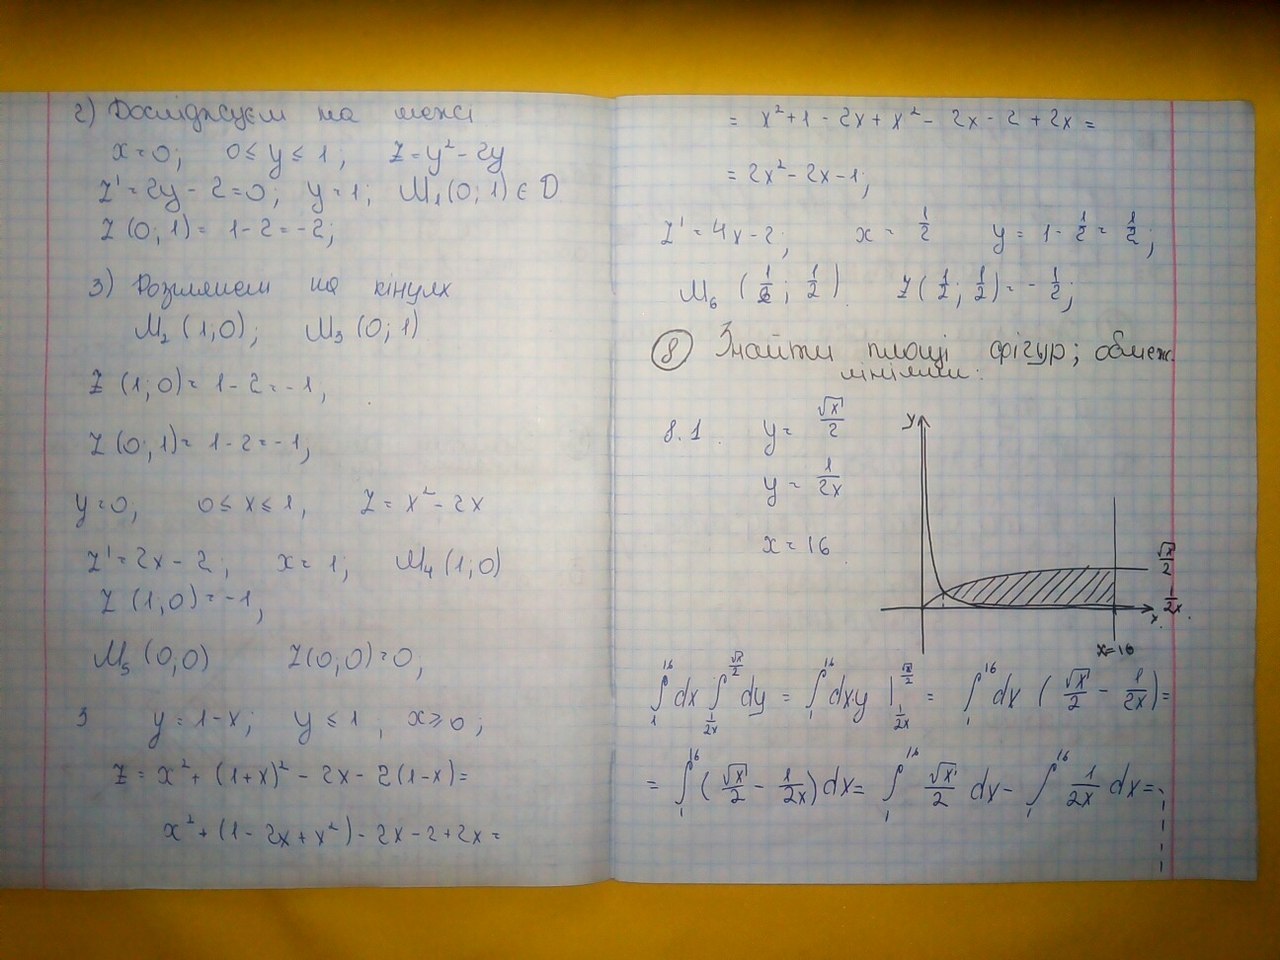 2) Досліджуєм на межі
x=0; 0≤y≤1; Z=y²-2y
Z'=2y-2=0; y=1; M₁(0;1)∈D
Z(0;1)=1-2=-2;
3) Розглянем на кінцях
M₂(1;0); M₃(0;1)
Z(1;0)=1-2=-1,
Z(0;1)=1-2=-1,
y=0, 0≤x≤1, Z=x²-2x
Z'=2x-2; x=1; M₄(1;0)
Z(1,0)=-1,
M₅(0,0) Z(0,0)=0,
3 y=1-x; y≤1, x≥0;
Z=x²+(1+x)²-2x-2(1-x)=
x²+(1-2x+x²)-2x-2+2x=
= x²+1-2x+x²-2x-2+2x=
= 2x²-2x-1;
Z'=4x-2; x=1/2 y=1-1/2=1/2;
M₆(1/2; 1/2) Z(1/2; 1/2)=-1/2;
8 Знайти площі фігур; обмеж.
лініями:
8.1 y=√x/2
y=1/2x
x=16
y
√x/2
1/2x
x
x=16
∫₁¹⁶dx ∫_{1/2x}^{√x/2} dy = ∫₁¹⁶ dx y |_{1/2x}^{√x/2} = ∫₁¹⁶ dx (√x/2 - 1/2x)=
= ∫₁¹⁶ (√x/2 - 1/2x)dx = ∫₁¹⁶ √x/2 dx - ∫₁¹⁶ 1/2x dx =